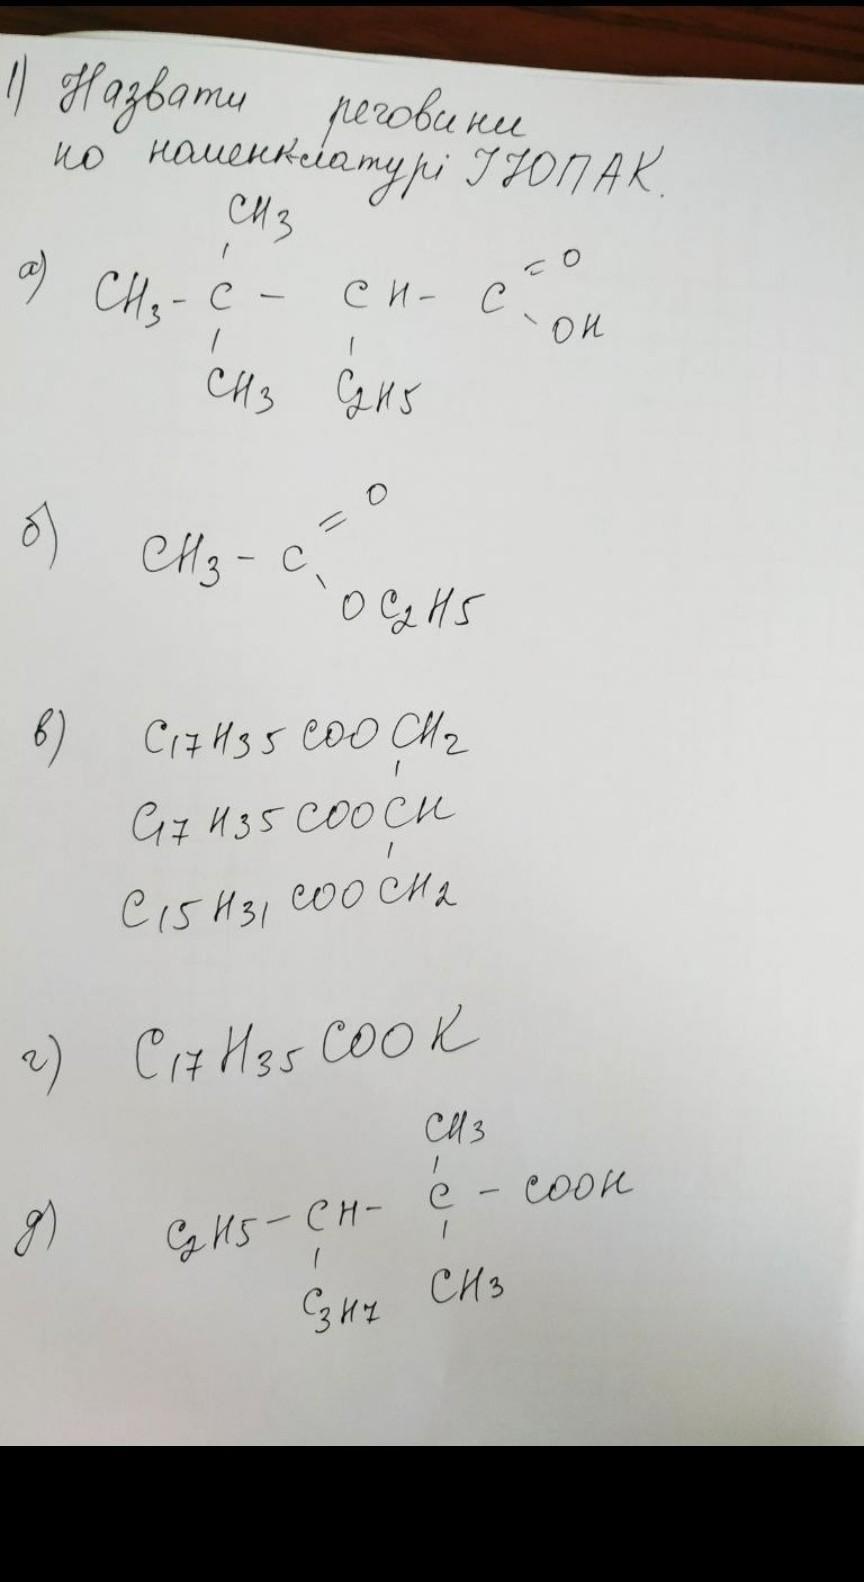 1) Назвати речовини
по номенклатурі ІЮПАК.
CH3
а) CH3 - C - CH - C = O
\ OH
CH3 C2H5
б) CH3 - C = O
\ OC2H5
в) C17H35COOCH2
C17H35COOCH
C15H31COOCH2
г) C17H35COOK
CH3
д) C2H5 - CH - C - COOH
C3H7 CH3